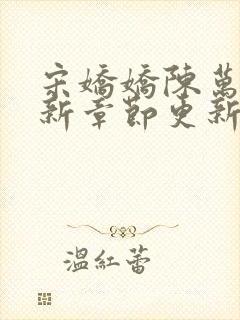 宋嬌嬌陳萬
新章節更新
溫紅蕾